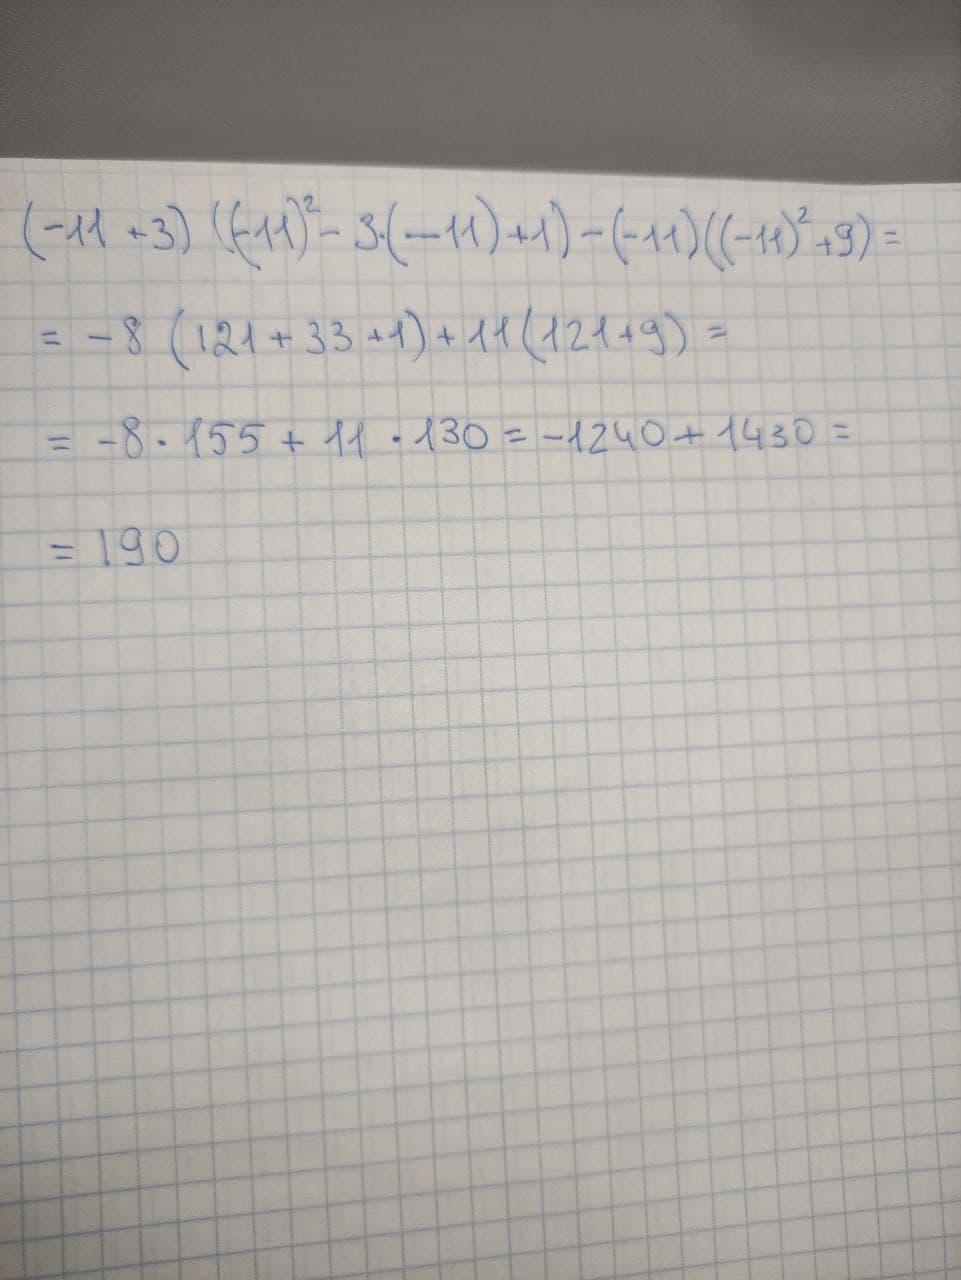 (-11 +3) ((-11)² - 3·(-11)+1) - (-11)((-11)²+9) =
= -8 (121 + 33 +1) + 11(121+9) =
= -8 · 155 + 11 · 130 = -1240 + 1430 =
= 190